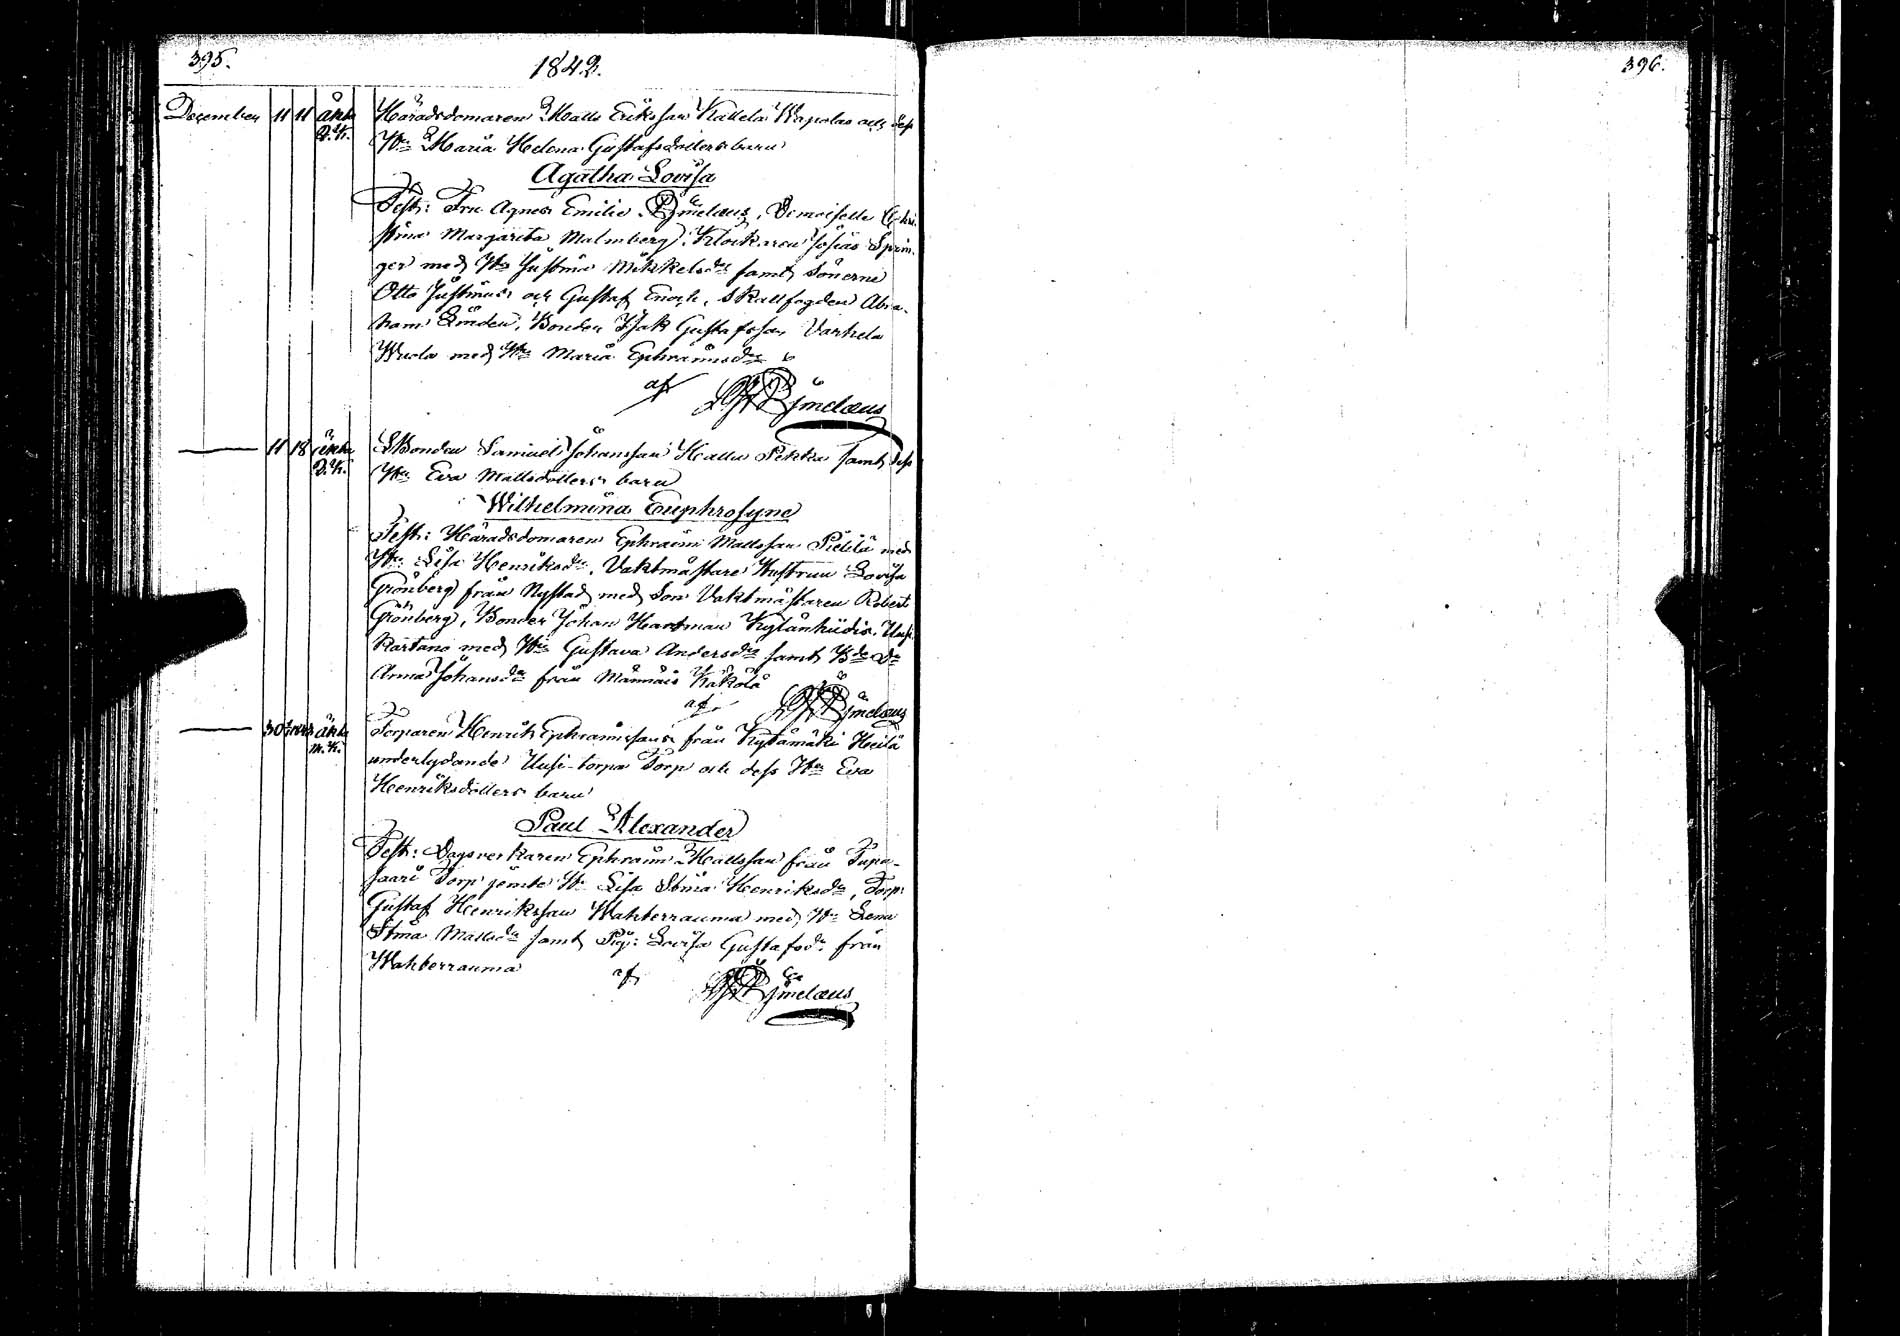 395.
1842.
396.
December 11 11 äkta Häradsdomaren Matts Erikssan Kallela Wapolas och dess
Q.K. Hu Maria Helena Gustafsdotters barn
Agatha Lovisa
Test: Fru Agnes Emilie Ejmelæus, Demoiselle Chri-
stina Margareta Malmberg, Klockaren Josias Sprin-
ger med Hu Justina Mikkelsdr samt Sönerne
Otto Justinus och Gustaf Enoch, Skallfogden Abra-
ham Linden, Bonden Isak Gustafssan Varhela
med Hu Maria Ephraimsdr
af Ejmelæus
— 11 18 äkta Bonden Samuel Johanssan Kallu Pekka samt dess
Q.K. Hu Eva Mattsdotters barn
Wilhelmina Euphrosyne
Test: Häradsdomaren Ephraim Mattssan Pietilä med
Hu Lisa Henriksdr, Vaktmästare Hustrun Lovisa
Grönberg från Nystad med Son Vaktmästaren Robert
Grönberg, Bonden Johan Hartman Kylänhiidis, Uusi-
kartano med Hu Gustava Andersdr samt Bde Dr
Anna Johansdr från Männäis Käkölä
af Ejmelæus
— 30 äkta Torparen Henrik Ephraimssans från Kylämäki Heilä
M.K. underlydande Uusi-torpa Torp och dess Hu Eva
Henriksdotters barn
Paul Alexander
Test: Dagsverkaren Ephraim Mattssan från Tupa-
saari Torp jemte Hu Lisa Stina Henriksdr, Torp:
Gustaf Henrikssan Wahterrauma med Hu Lena
Stina Mattsdr samt Pig: Lovisa Gustafsdr från
Wahterrauma af Ejmelæus